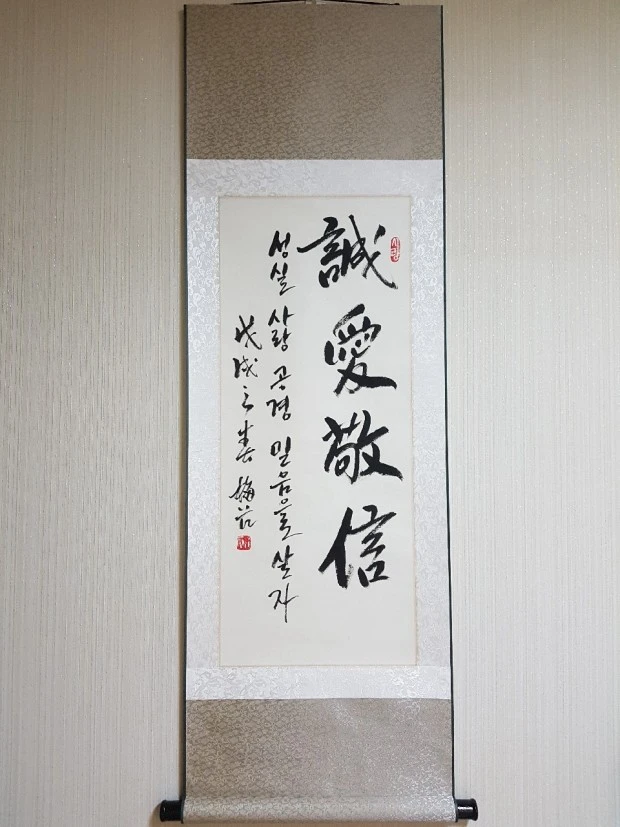 誠愛敬信
성실 사랑 공경 믿음을 살자
戊戌之春